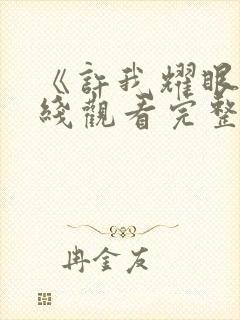 《許我耀眼
綫觀看完整
冉金友